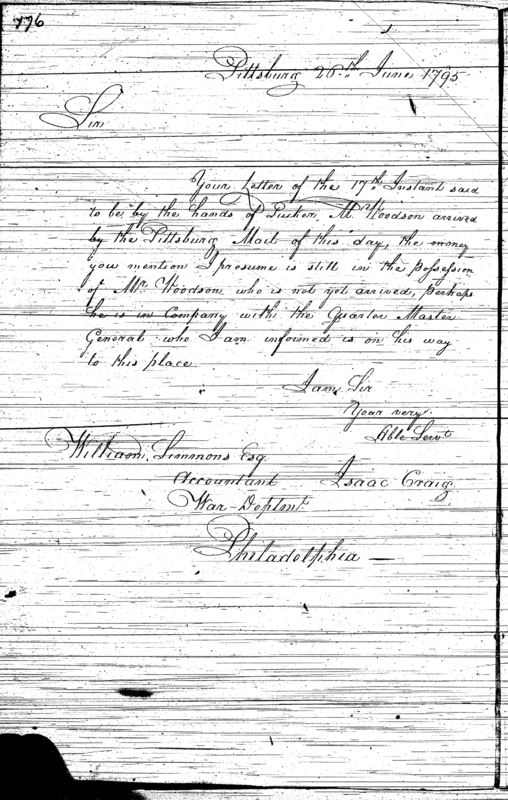 176
Pittsburg 26th June 1795
Sir
Your Letter of the 17th Instant said
to be by the hands of Tucker, Mr Woodson arrived
by the Pittsburg Mail of this day, the money
you mention I presume is still in the possession
of Mr. Woodson who is not yet arrived, perhaps
he is in Company with the Quarter Master
General who I am informed is on his way
to this place
I am Sir
Your very
Hble Servt
William Simmons Esq.
Accountant Isaac Craig
War-Deptmt
Philadelphia —